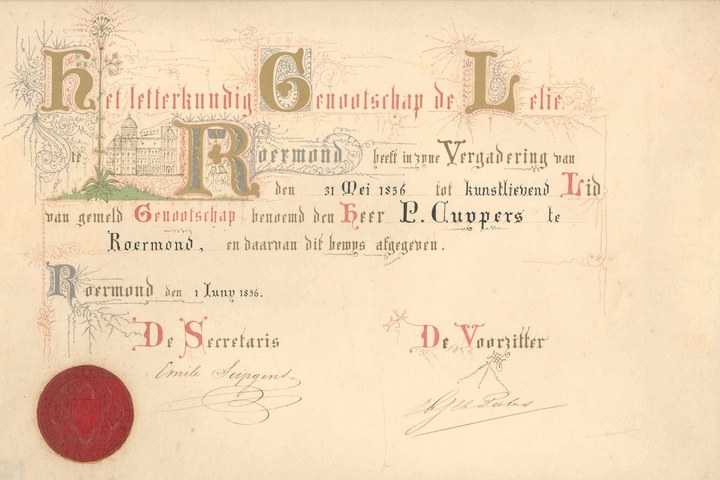 Het letterkundig Genootschap de Lelie
te Roermond heeft in zyne Vergadering van
den 31 Mei 1856 tot kunstlievend Lid
van gemeld Genootschap benoemd den Heer P. Cuypers te
Roermond, en daarvan dit bewys afgegeven.
Roermond den 1 Juny 1856.
De Secretaris De Voorzitter
Emile Seipgens